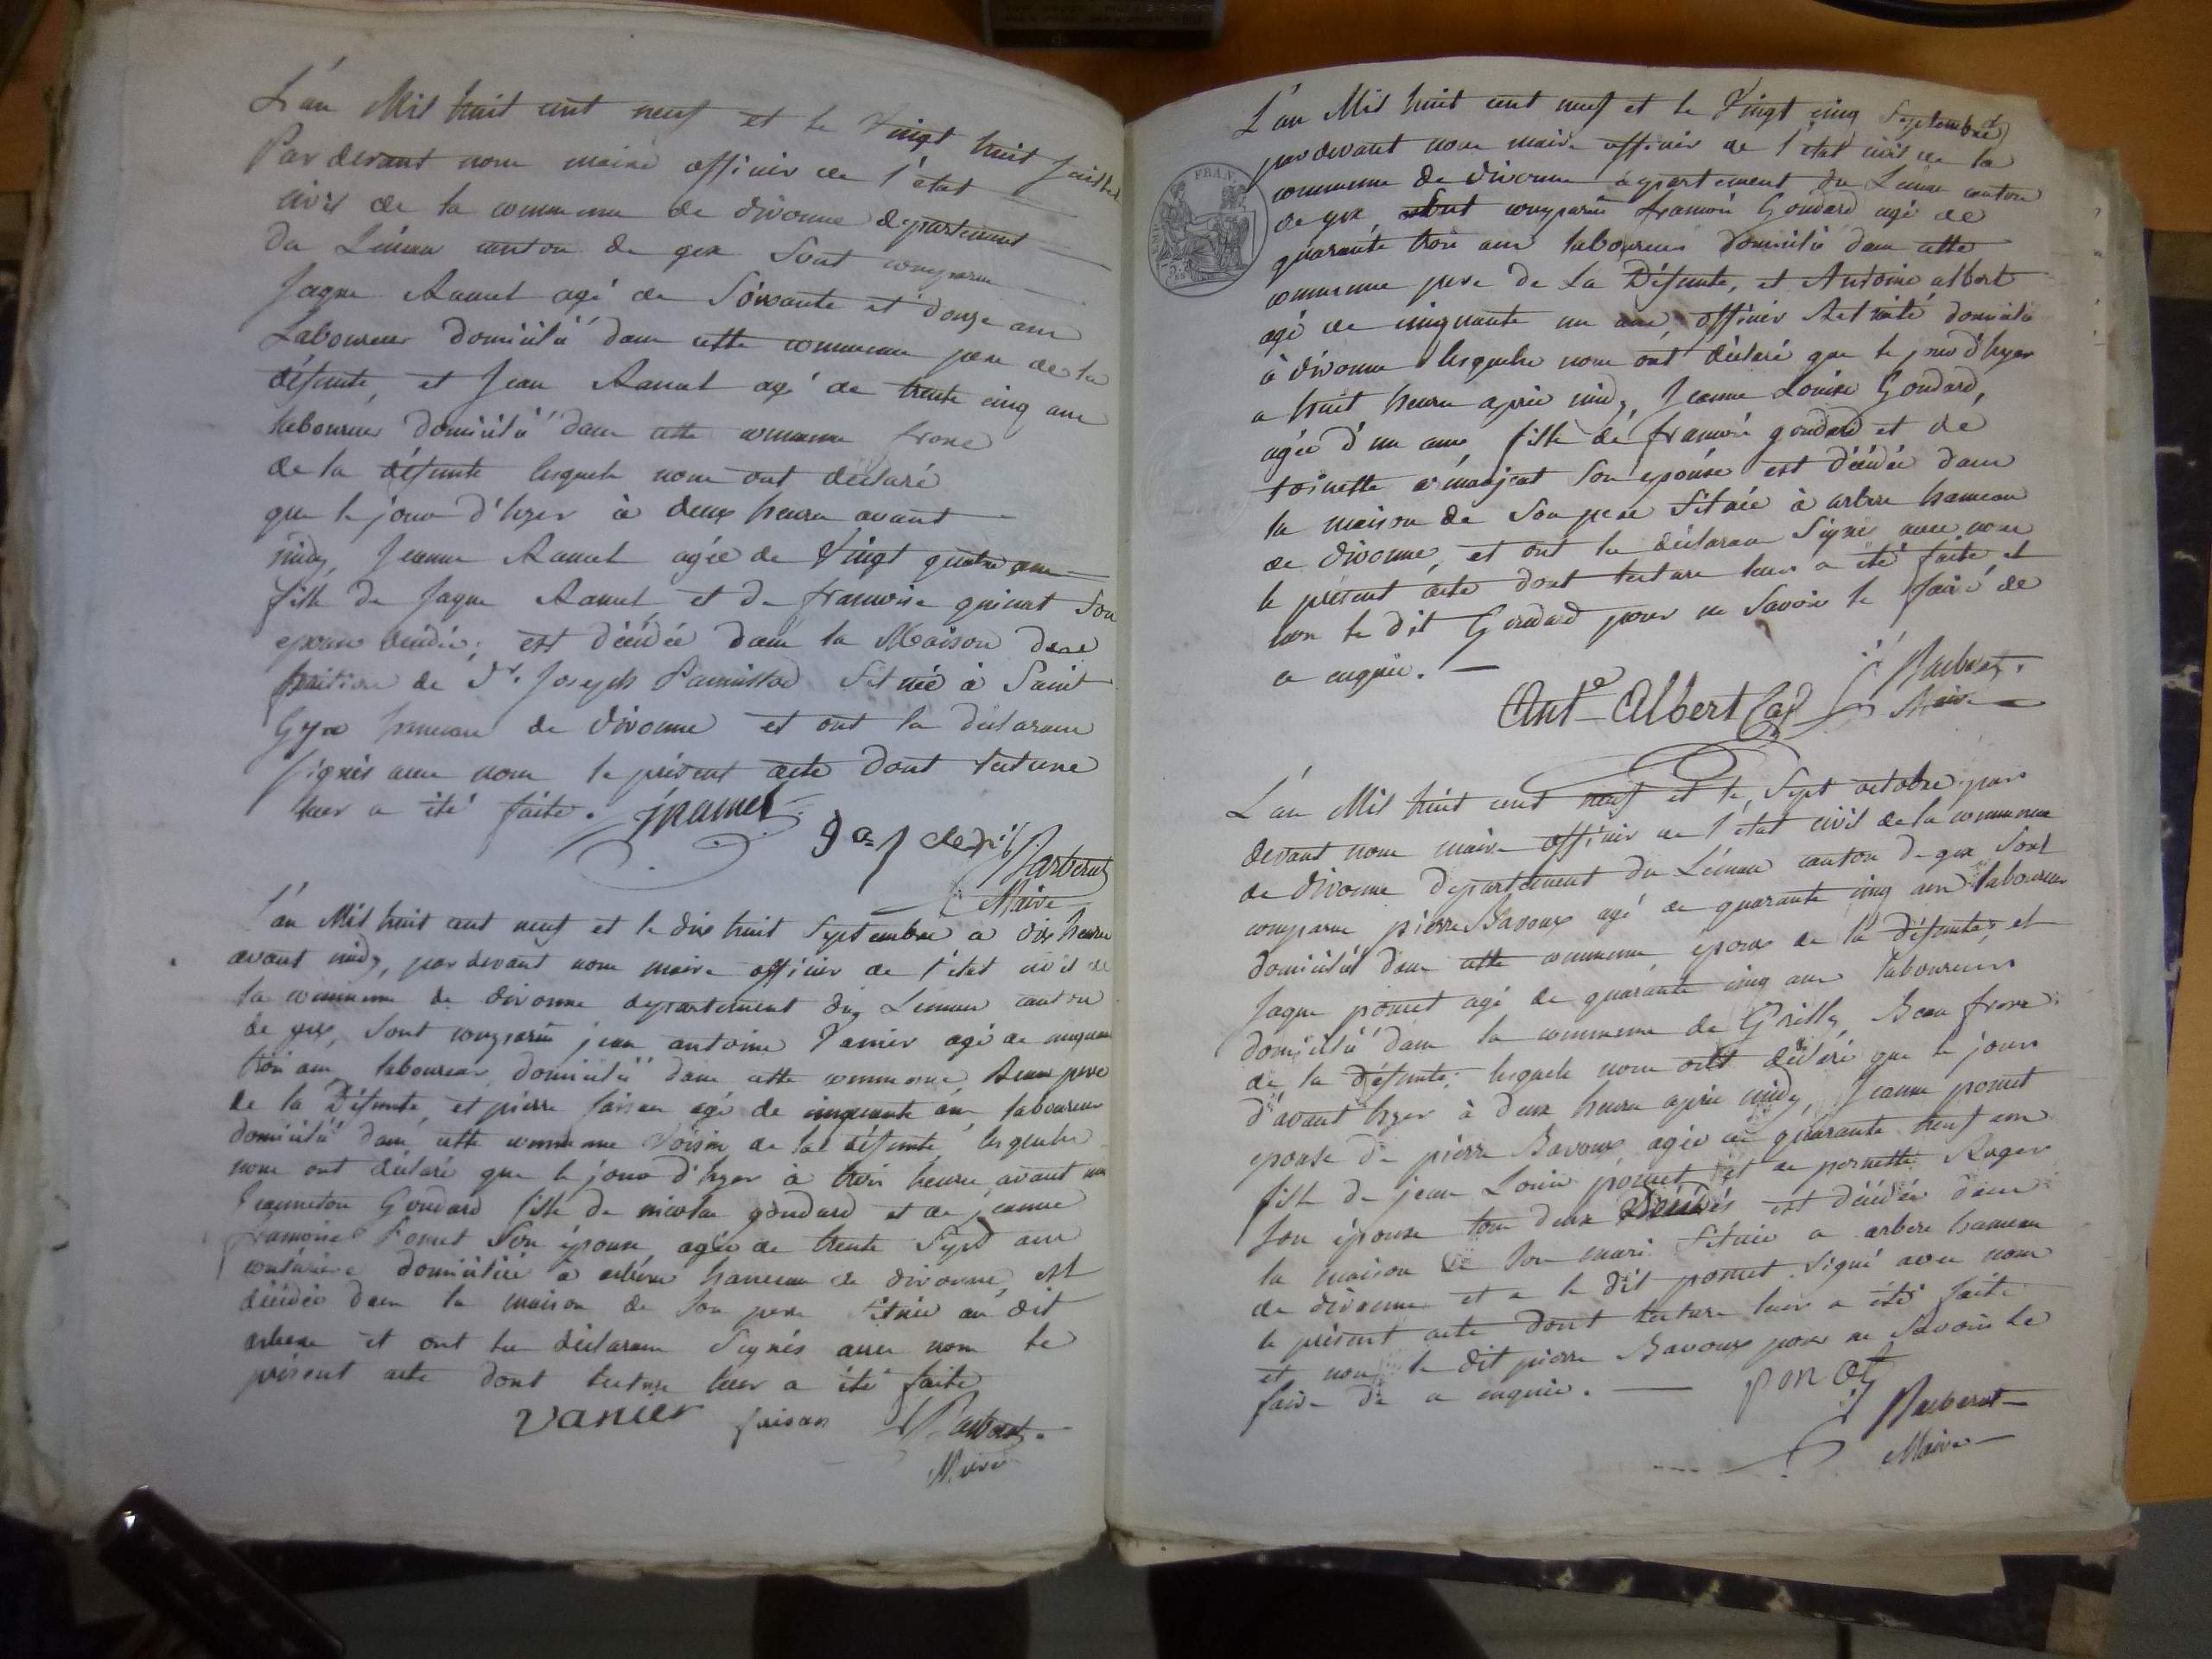 L'an Mil huit cent neuf et le Vingt huit Juillet
Pardevant nous maire officier de l'état
civil de la commune de divonne département
du Léman canton de gex Sont comparus
Jaque Ramel agé de Soixante et douze ans
Laboureur domicilié dans cette commune pere de la
défunte, et Jean Ramel agé de trente cinq ans
laboureur domicilié dans cette commune frere
de la défunte lesquels nous ont déclaré
que le jour d'hyer à deux heures avant
midy, Jeanne Ramel agée de Vingt quatre ans
fille de Jaque Ramel et de francoise Son
epouse est décédée dans la Maison
de Sr. Joseph Située à Saint
Gyx hameau de divonne et ont les déclarans
Signés avec nous le présent acte dont lecture
leur a été faite. jramel
Barberat
Maire
L'an Mil huit cent neuf et le dix huit Septembre a dix heures
avant midy, par devant nous maire officier de l'état civil de
la commune de divonne departement du Leman canton
de gex, Sont comparus jean antoine Vanier agé de cinquante
trois ans, laboureur domicilié dans cette commune, Beau pere
de la Défunte, et pierre faisan agé de cinquante ans laboureur
domicilié dans cette commune Voisin de la défunte, lesquels
nous ont déclaré que le jour d'hyer à trois heures avant midy
Jeanneton Goudard fille de nicolas goudard et de jeanne
francoise Pomet Son épouse, agée de trente Sept ans
couturiere domiciliée à arbere hameau de divonne, est
décédée dans la maison de Son pere Située au dit
arbere et ont les déclarans Signés avec nous le
présent acte dont lecture leur a été faite
vanier faisan Barberat
Maire
L'an Mil huit cent neuf et le Vingt cinq Septembre
pardevant nous maire officier de l'état civil de la
commune de divonne département du Léman canton
de gex Sont comparus francois Goudard agé de
quarante trois ans laboureur domicilié dans cette
commune pere de La Défunte, et Antoine albert
agé de cinquante un ans, officier Retraité domicilié
à divonne lesquels nous ont déclaré que le jour d'hyer
a huit heures après midy, Jeanne Louise Goudard,
agée d'un ans, fille de francois goudard et de
toinette Son epouse est décédée dans
la maison de Son pere Située à arbere hameau
de divonne, et ont les déclarans Signés avec nous
le présent acte dont lecture leur a été faite, et
non le dit Goudard pour ne Savoir le faire de
ce enquis.
Ante Albert Barberat
Maire
L'an Mil huit cent neuf et le Sept octobre par
devant nous maire officier de l'état civil de la commune
de divonne département du Léman canton de gex Sont
comparus pierre Bavoux agé de quarante cinq ans laboureur
domicilié dans cette commune époux de la défunte, et
Jaque pomet agé de quarante cinq ans laboureur
domicilié dans la commune de Grilly, Beau frere
de la défunte, lesquels nous ont déclaré que le jour
d'avant hyer à deux heures après midy, Jeanne pomet
epouse de pierre Bavoux agée de quarante neuf ans
fille de jean Louis pomet et de pernette Roger
Son épouse tous deux décédés est décédée dans
la maison de Son mari Située a arbere hameau
de divonne et a le dit pomet Signé avec nous
le présent acte dont lecture leur a été faite
et non le dit pierre Bavoux pour ne Savoir le
faire de ce enquis. pomet
Barberat
Maire